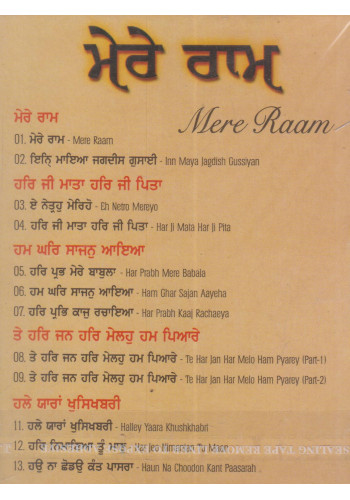 ਮੇਰੇ ਰਾਮ
Mere Raam
ਮੇਰੇ ਰਾਮ
01. ਮੇਰੇ ਰਾਮ - Mere Raam
02. ਇਨ੍ਹਿ ਮਾਇਆ ਜਗਦੀਸ ਗੁਸਾਈ - Inn Maya Jagdish Gussiyan
ਹਰਿ ਜੀ ਮਾਤਾ ਹਰਿ ਜੀ ਪਿਤਾ
03. ਏ ਨੇਤ੍ਰਹੁ ਮੇਰਿਹੋ - Eh Netro Mereyo
04. ਹਰਿ ਜੀ ਮਾਤਾ ਹਰਿ ਜੀ ਪਿਤਾ - Har Ji Mata Har Ji Pita
ਹਮ ਘਰਿ ਸਾਜਨੁ ਆਇਆ
05. ਹਰਿ ਪ੍ਰਭ ਮੇਰੇ ਬਾਬੁਲਾ - Har Prabh Mere Babala
06. ਹਮ ਘਰਿ ਸਾਜਨੁ ਆਇਆ - Ham Ghar Sajan Aayeha
07. ਹਰਿ ਪ੍ਰਭਿ ਕਾਜੁ ਰਚਾਇਆ - Har Prabh Kaaj Rachaeya
ਤੇ ਹਰਿ ਜਨ ਹਰਿ ਮੇਲਹੁ ਹਮ ਪਿਆਰੇ
08. ਤੇ ਹਰਿ ਜਨ ਹਰਿ ਮੇਲਹੁ ਹਮ ਪਿਆਰੇ - Te Har Jan Har Melo Ham Pyarey (Part-1)
09. ਤੇ ਹਰਿ ਜਨ ਹਰਿ ਮੇਲਹੁ ਹਮ ਪਿਆਰੇ - Te Har Jan Har Melo Ham Pyarey (Part-2)
ਹਲੇ ਯਾਰਾਂ ਖੁਸਿਖਬਰੀ
11. ਹਲੇ ਯਾਰਾਂ ਖੁਸਿਖਬਰੀ - Halley Yaara Khushkhabri
12. ਹਰਿ
13. ਹਉ ਨਾ ਛੋਡਉ ਕੰਤ ਪਾਸਰਾ - Haun Na Choodon Kant Paasarah